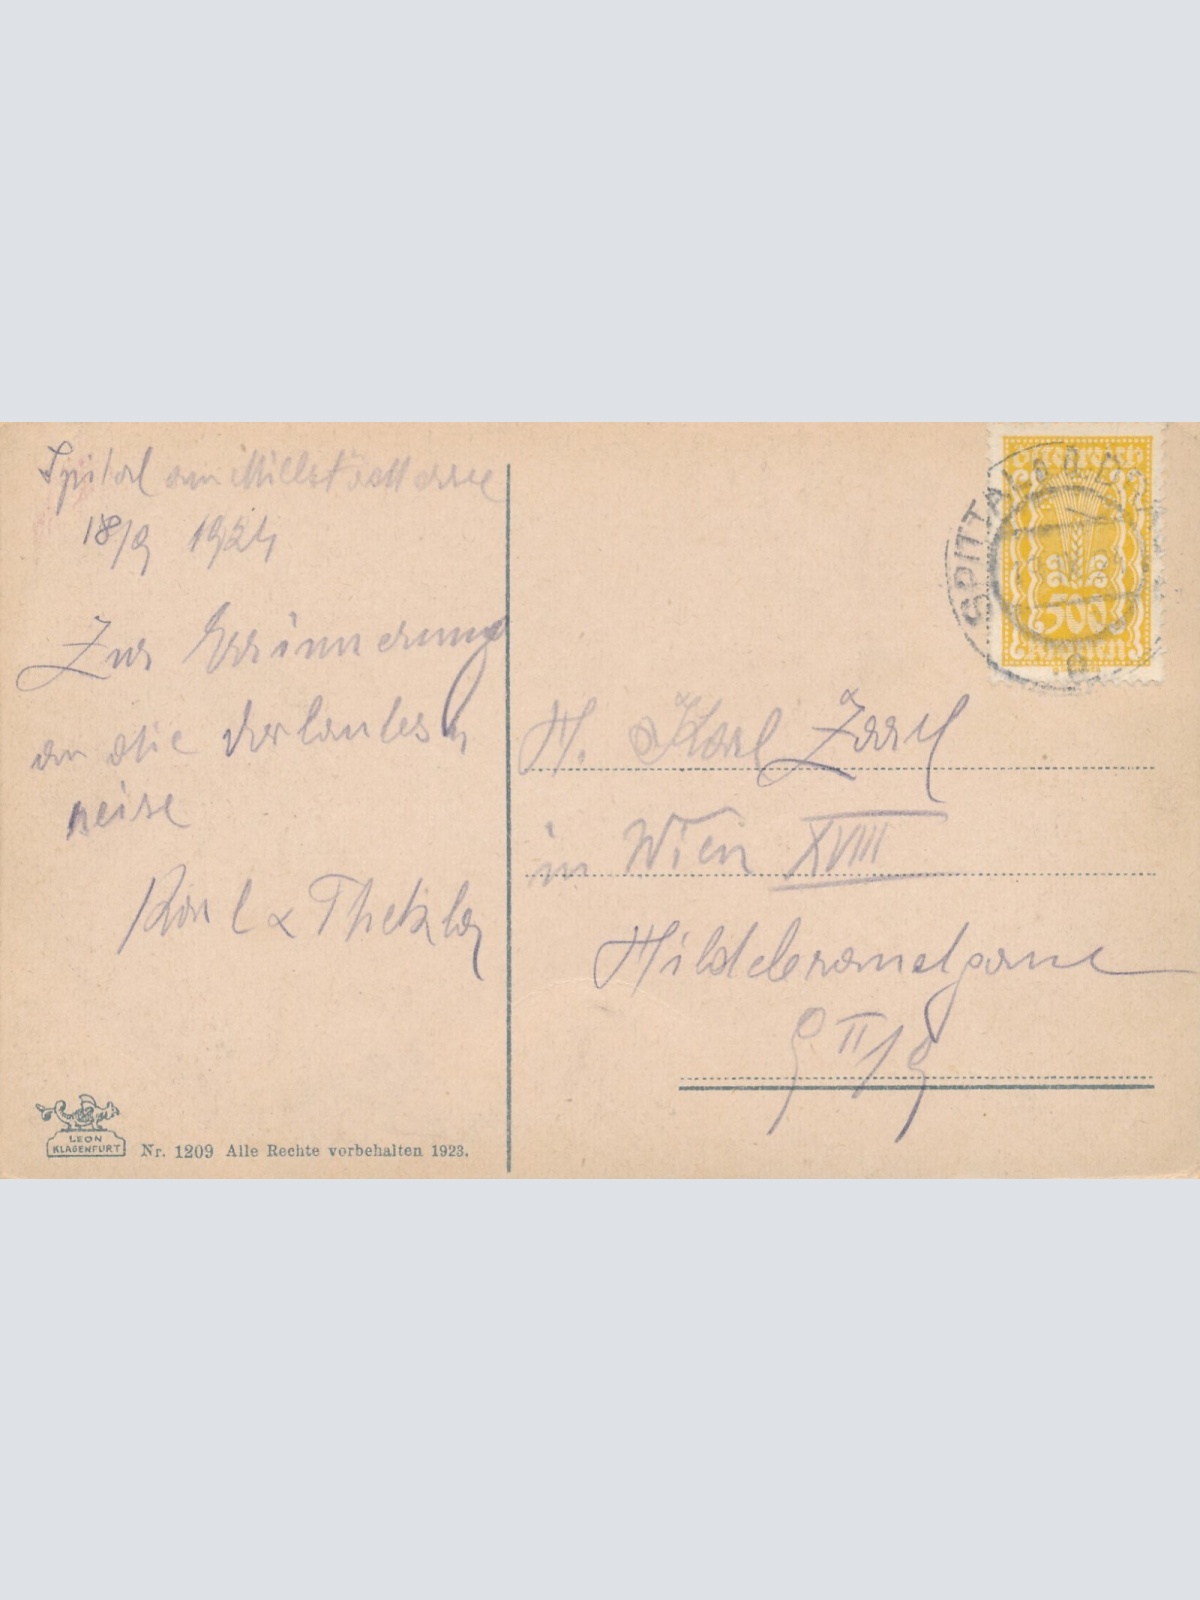 Spital am Millstattersee
18/9 1924
Zur Errinnerung
an die
reise
Karl & Thekla
LEON
KLAGENFURT
Nr. 1209 Alle Rechte vorbehalten 1923.
SPITTAL A.D. DRAU
500
Kronen
H. Karl
in Wien XVIII
Hildebrandgasse
9 II 19